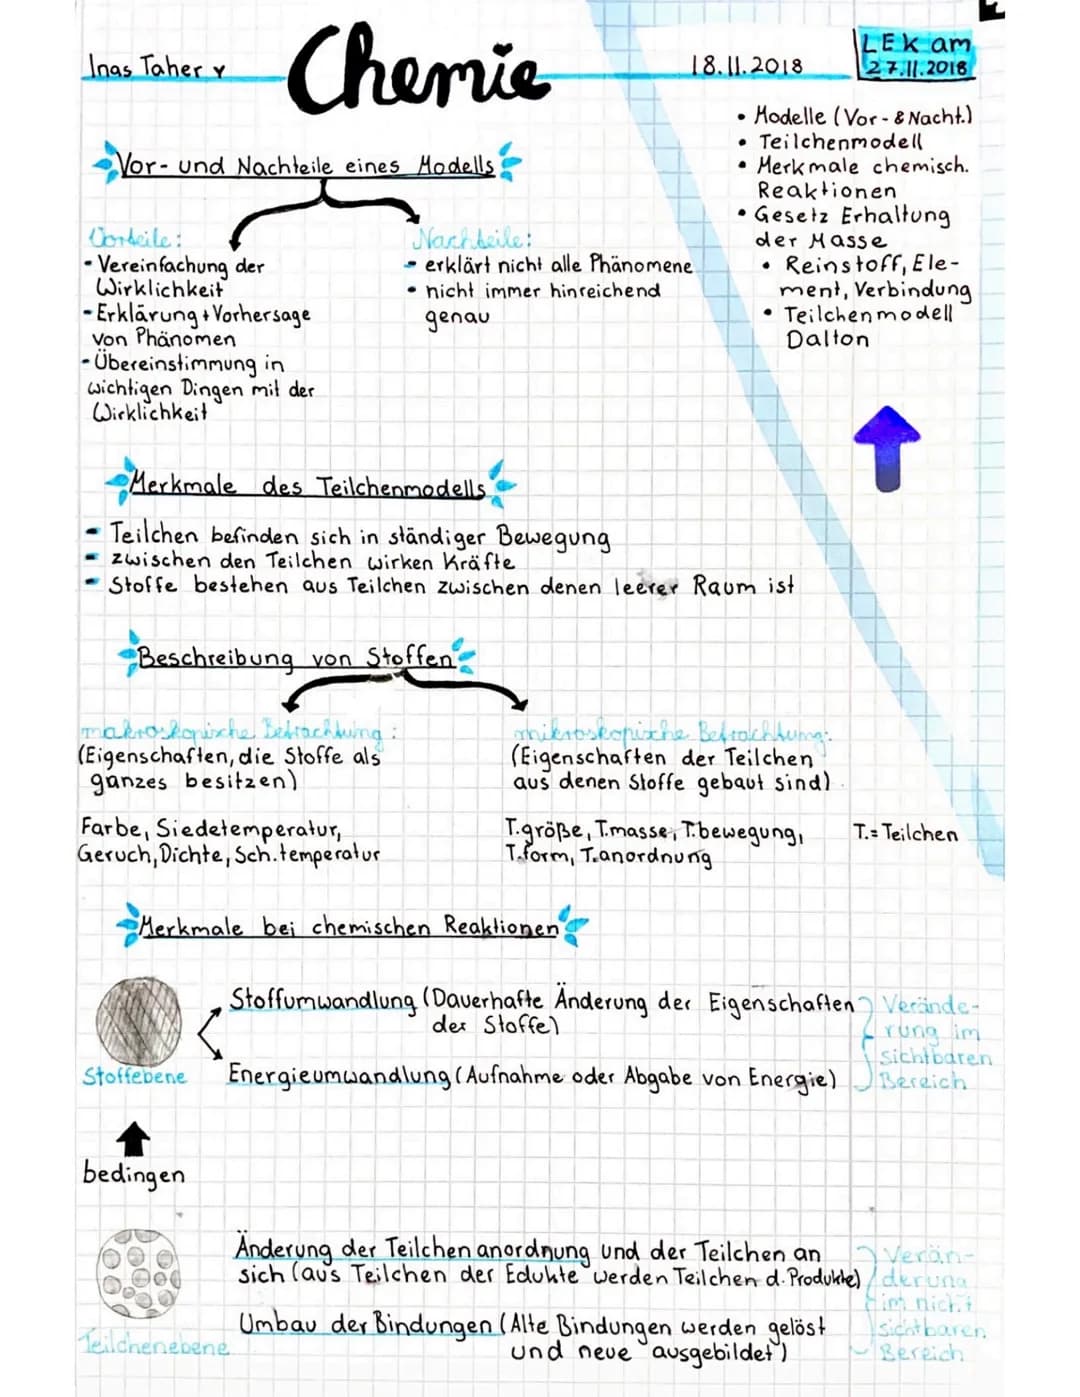 Inas Taher
Chemie
18.11.2018
LEK am
27.11.2018
• Modelle (Vor- & Nacht.)
• Teilchenmodell
• Merkmale chemisch.
Reaktionen
• Gesetz Erhaltung
der Masse
• Reinstoff, Ele-
ment, Verbindung
• Teilchenmodell
Dalton
Vor- und Nachteile eines Modells
Vorteile:
- Vereinfachung der
Wirklichkeit
- Erklärung + Vorhersage
von Phänomen
- Übereinstimmung in
wichtigen Dingen mit der
Wirklichkeit
Nachteile:
• erklärt nicht alle Phänomene
• nicht immer hinreichend
genau
Merkmale des Teilchenmodells
- Teilchen befinden sich in ständiger Bewegung
- zwischen den Teilchen wirken Kräfte
- Stoffe bestehen aus Teilchen zwischen denen leerer Raum ist
Beschreibung von Stoffen
makroskopische Betrachtung:
(Eigenschaften, die Stoffe als
ganzes besitzen)
Farbe, Siedetemperatur,
Geruch, Dichte, Sch.temperatur
mikroskopische Betrachtung:
(Eigenschaften der Teilchen
aus denen Stoffe gebaut sind)
T.größe, T.masse, T.bewegung,
T.form, T.anordnung
T.= Teilchen
Merkmale bei chemischen Reaktionen
Stoffebene
Stoffumwandlung (Dauerhafte Änderung der Eigenschaften
der Stoffe)
Energieumwandlung (Aufnahme oder Abgabe von Energie)
Verände-
rung im
sichtbaren
Bereich
bedingen
Teilchenebene
Änderung der Teilchenanordnung und der Teilchen an
sich (aus Teilchen der Edukte werden Teilchen d. Produkte)
Umbau der Bindungen (Alte Bindungen werden gelöst
und neue ausgebildet)
Verän-
derung
im nicht
sichtbaren
Bereich